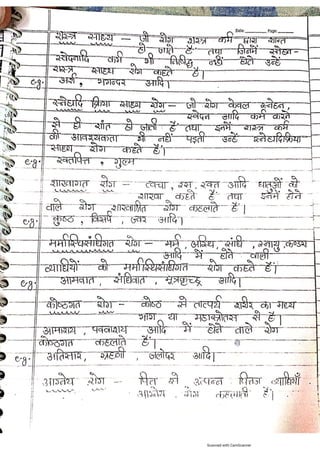 Date Page
शस्त्र साध्य — जो रोग शस्त्र कर्म द्वारा शान्त
हो जाते हैं तथा जिनमें स्नेहन-
स्वेदनादि कर्म भी निषिद्ध नहीं होते उन्हें
शस्त्र साध्य रोग कहते हैं।
e.g. अर्श, भगन्दर आदि।
स्नेहादि क्रिया साध्य रोग — जो रोग केवल स्नेहन,
स्वेदन आदि कर्म करने
से ही शांत हो जाती हैं तथा इनमें शस्त्र कर्म
की आवश्यकता भी नहीं पड़ती उन्हें स्नेहादिक्रिया
साध्य रोग कहते हैं।
e.g: रक्तपित्त, गुल्म
शाखागत रोग — त्वचा, रस, रक्त आदि धातुओं को
शाखा कहते हैं तथा इनमें होने
वाले रोग शाखाश्रित रोग कहलाते हैं।
e.g: कुष्ठ, विसर्प, ज्वर आदि।
मर्मास्थिसंधिगत रोग — मर्म, अस्थि, संधि, स्नायु, कण्डरा
आदि में होने वाली
व्याधियों को मर्मास्थिसंधिगत रोग कहते हैं।
e.g: आमवात, संधिवात, मूत्रकृच्छ्र आदि।
कोष्ठगत रोग — कोष्ठ से तात्पर्य शरीर का मध्य
भाग या महास्त्रोतस से है।
आमाशय, पक्वाशय आदि में होने वाले रोग
कोष्ठगत कहलाते हैं।
e.g. अतिसार, ग्रहणी, जलोदर आदि।
आग्नेय रोग — पित्त से उत्पन्न पित्तज व्याधियाँ
आग्नेय रोग कहलाती हैं।
Scanned with CamScanner